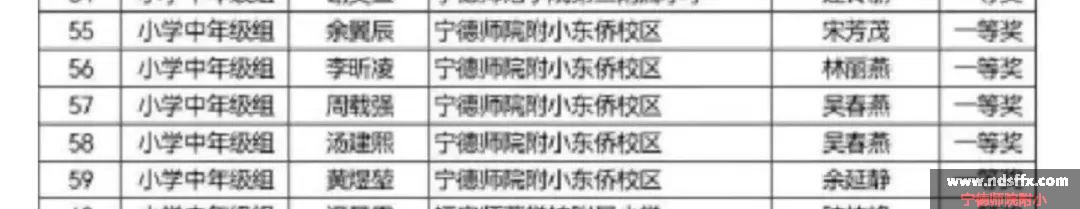 55 小学中年级组 余翼辰 宁德师院附小东侨校区 宋芳茂 一等奖
56 小学中年级组 李昕凌 宁德师院附小东侨校区 林丽燕 一等奖
57 小学中年级组 周载强 宁德师院附小东侨校区 吴春燕 一等奖
58 小学中年级组 汤建熙 宁德师院附小东侨校区 吴春燕 一等奖
59 小学中年级组 黄煜堃 宁德师院附小东侨校区 余延静
www.ndsffx.com
宁德师院附小